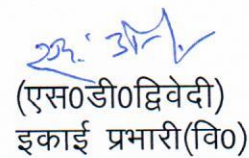 (एस0डी0द्विवेदी)
इकाई प्रभारी(वि0)